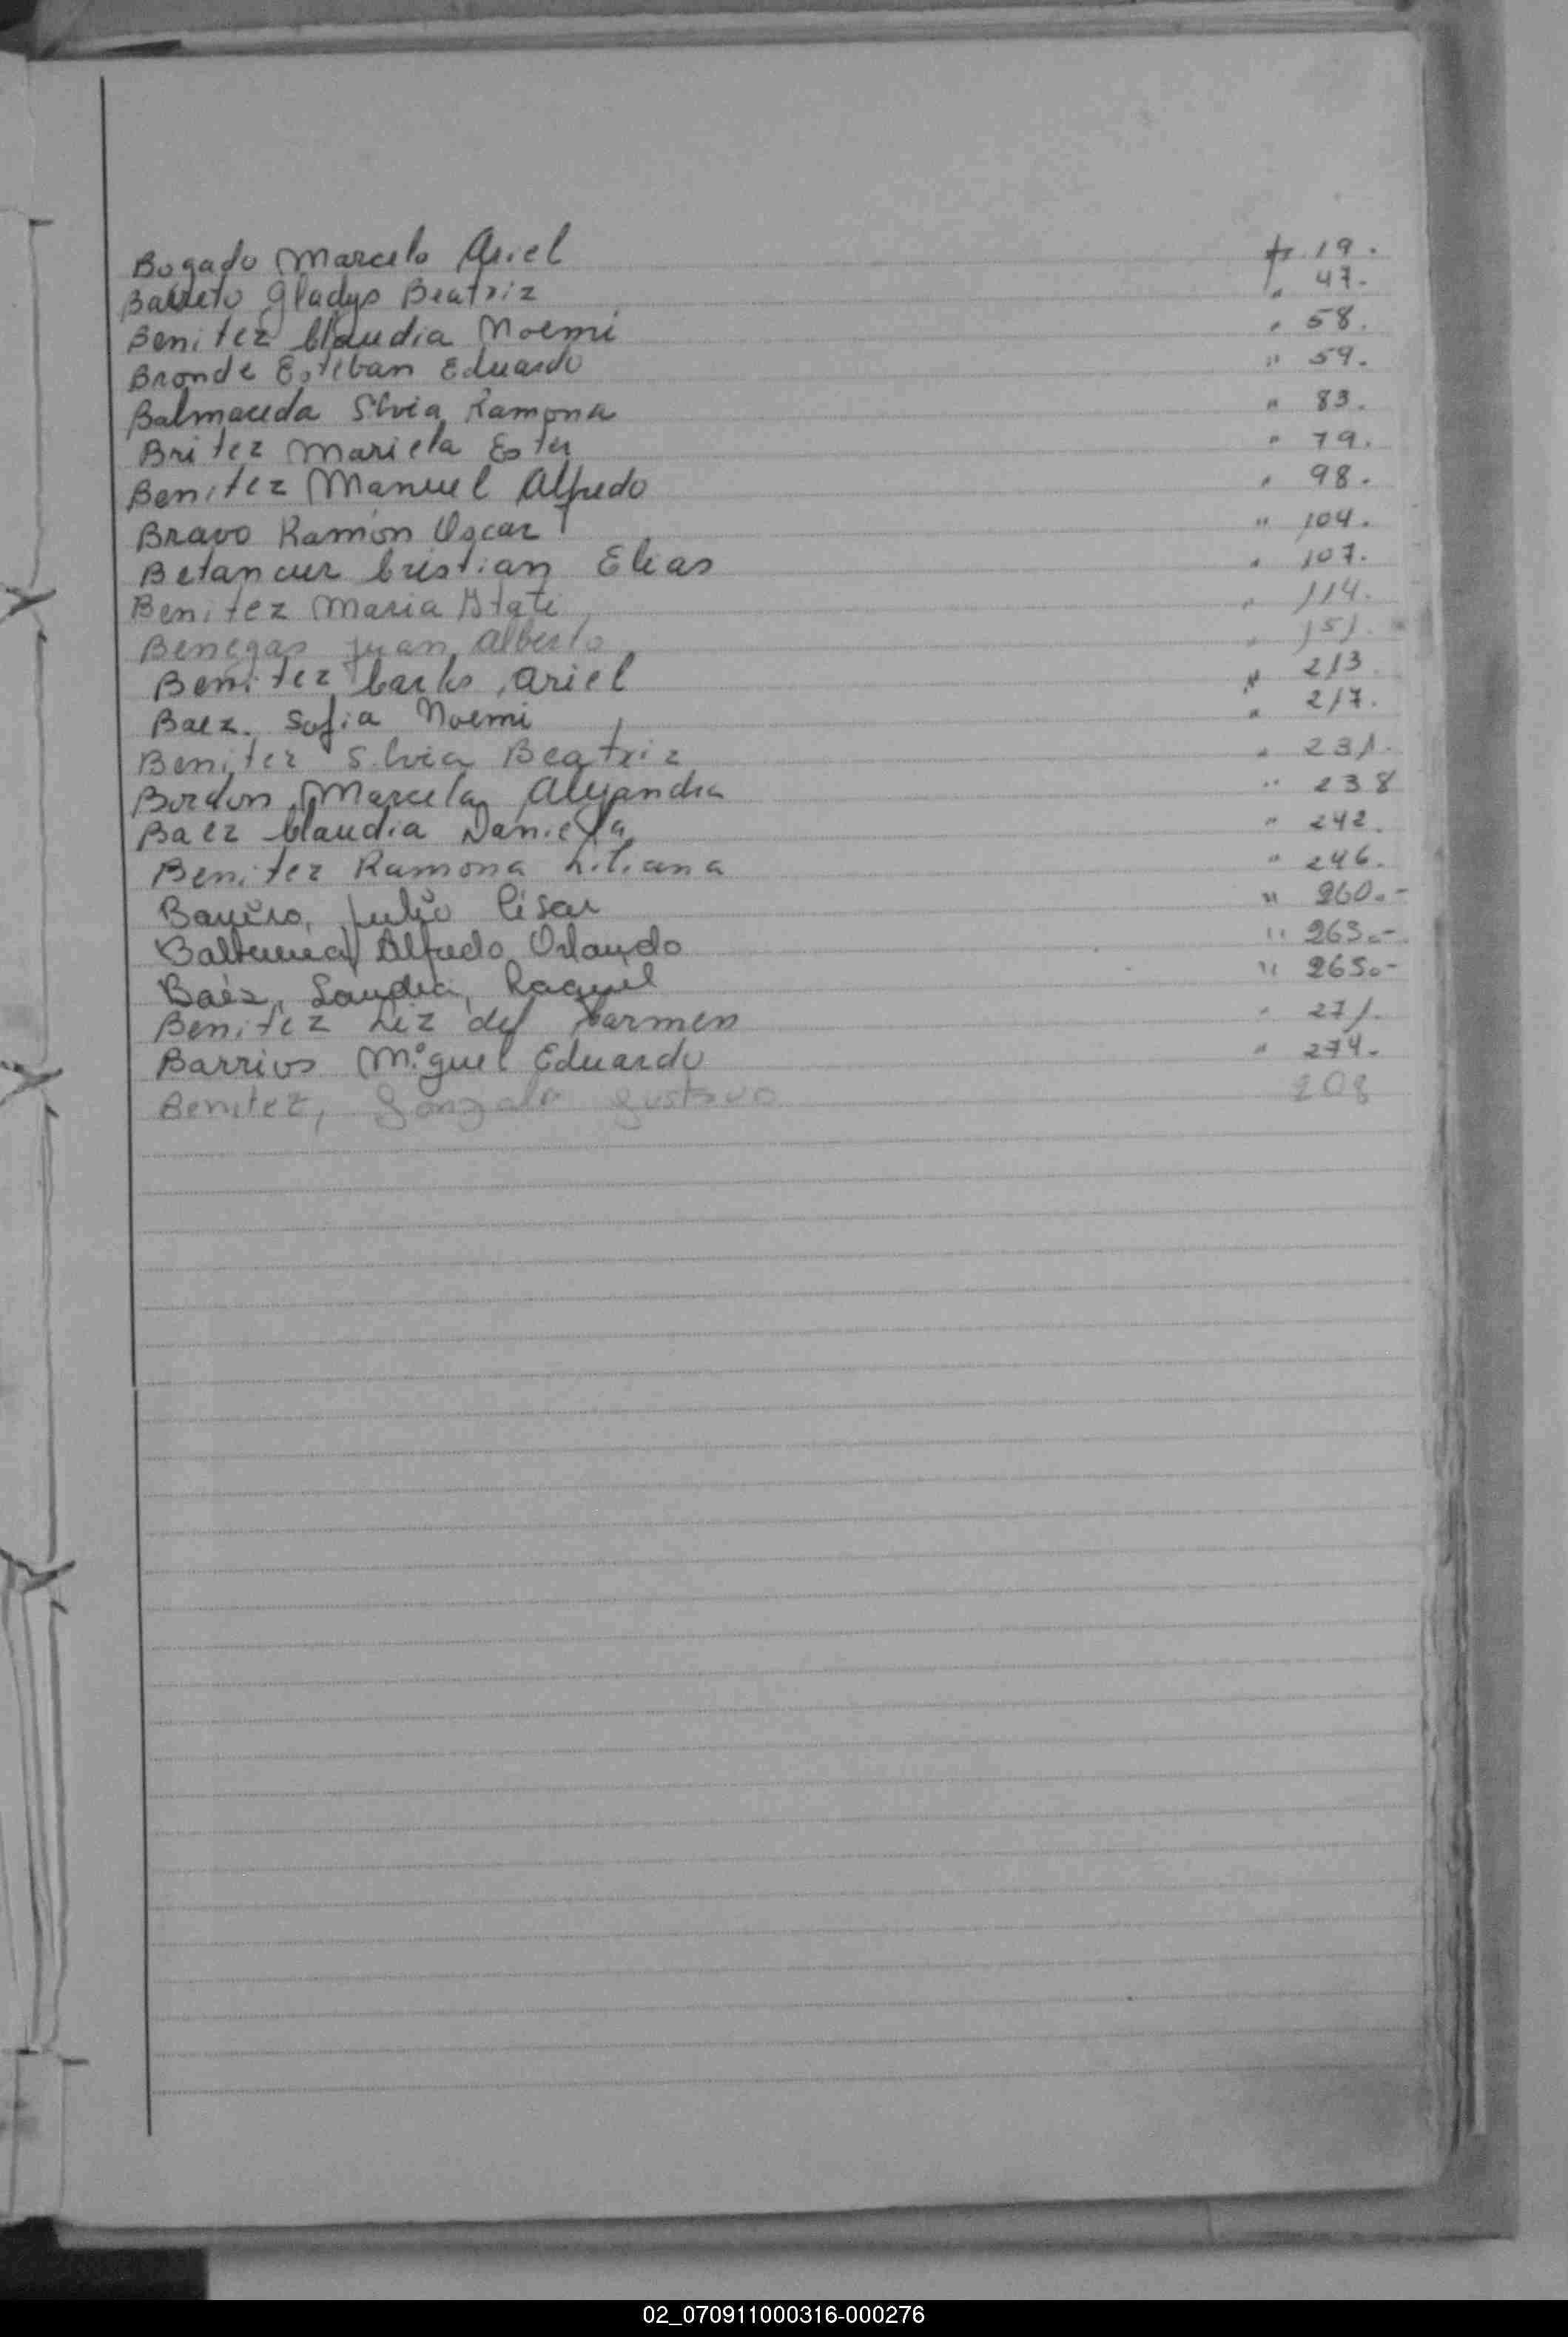 Bogado Marcelo Ariel fs. 19.
Barreto Gladys Beatriz " 47.
Benitez Claudia Noemi " 58.
Bronde Esteban Eduardo " 59.
Balmaceda Silvia Ramona " 83.
Britez Mariela Ester " 79.
Benitez Manuel Alfredo " 98.
Bravo Ramón Oscar " 104.
Betancur Cristian Elias " 107.
Benitez Maria Itati " 114.
Benegas Juan Alberto " 151.
Benitez Carlos Ariel " 213
Baez Sofia Noemi " 217.
Benitez Silvia Beatriz " 231.
Bordon Marcela Alejandra " 238
Baez Claudia Daniela " 242.
Benitez Ramona Liliana " 246.
Julio César " 260.-
Alfredo Orlando " 263.-
Baéz, Sandra, Raquel " 265.-
Benitez Liz del Carmen " 271.
Barrios Miguel Eduardo " 274.
Benitez, Gonzalo Gustavo 208
02_070911000316-000276